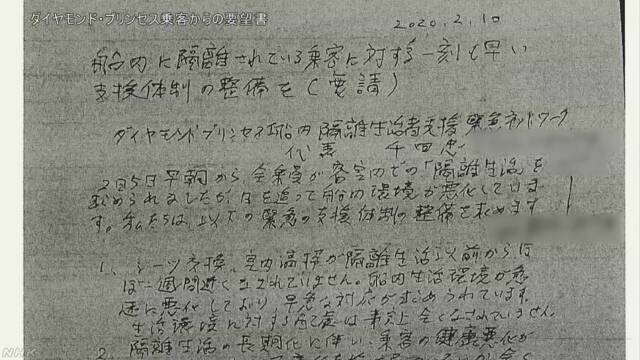 ダイヤモンド・プリンセス乗客からの要望書
2020.2.10
船内に隔離されている乗客に対する一刻も早い
支援体制の整備を(要請)
ダイヤモンドプリンセス船内隔離生活者支援緊急ネットワーク
代表 千田忠
2月5日早朝から、全乗員が客室内での「隔離生活」を
求められましたが、日を追って船内環境が悪化していま
す。私たちは、以下の緊急の支援体制の整備を求めます
1、シーツ交換、室内清掃が隔離生活以前からほ
ぼ一週間近くなされていません。船内生活環境が急
速に悪化しており、早急な対応が求められています。
生活環境に対する配慮は事実上全くなされていません。
2. 隔離生活の長期化に伴い、乗客の健康悪化が
NHK